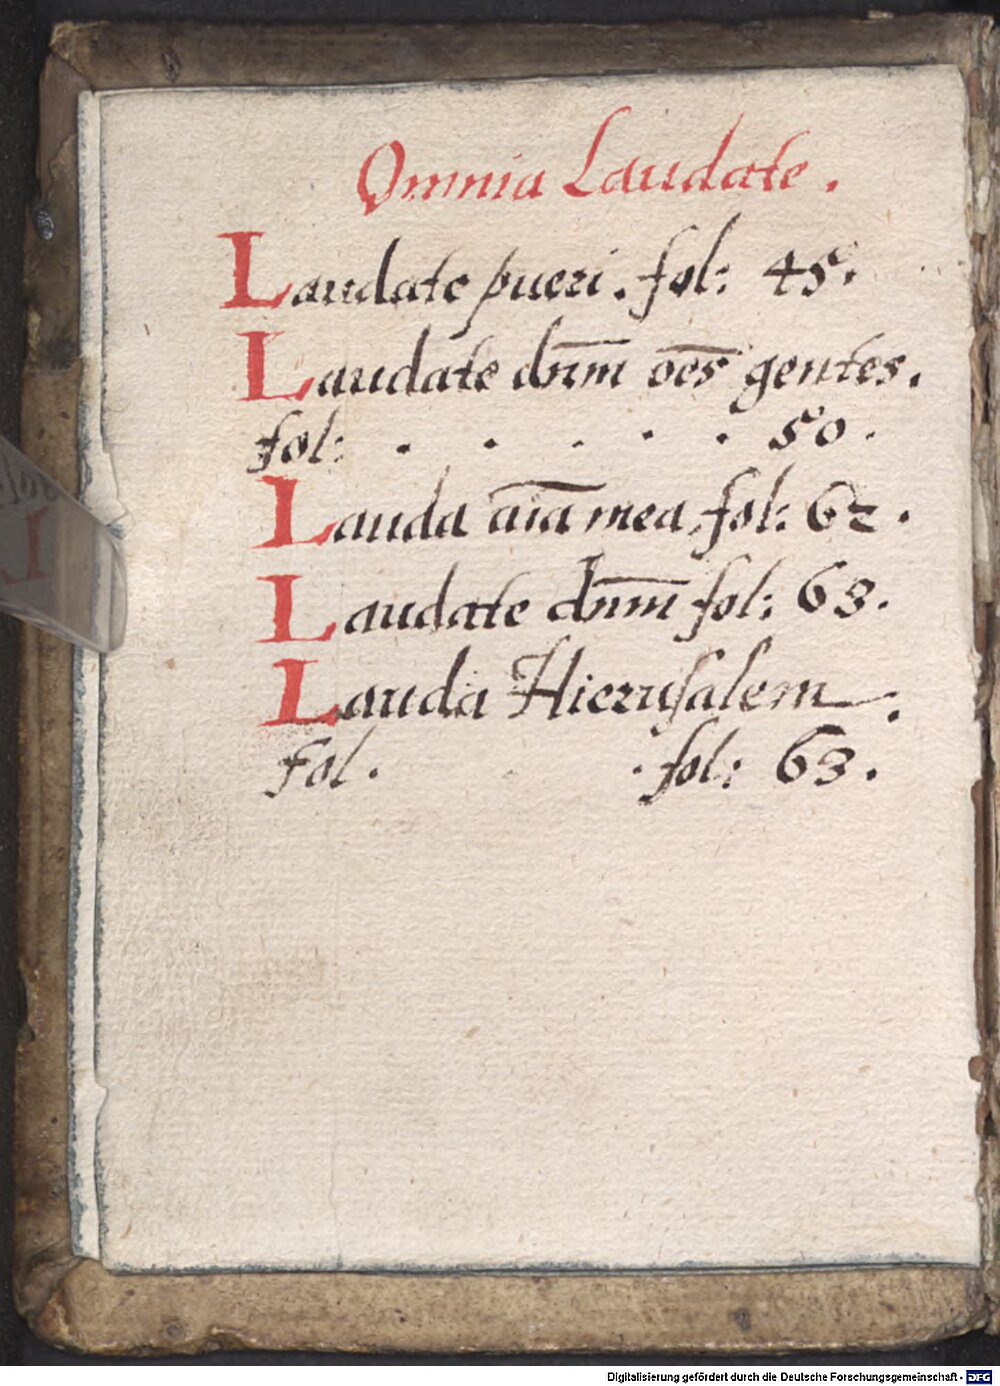 Omnia Laudate.
Laudate pueri. fol: 45.
Laudate dn̄m oēs gentes.
fol: . . . . . 50.
Lauda aīa mea fol: 62.
Laudate dn̄m fol: 63.
Lauda Hierusalem.
fol. . fol: 63.
Digitalisierung gefördert durch die Deutsche Forschungsgemeinschaft - DFG